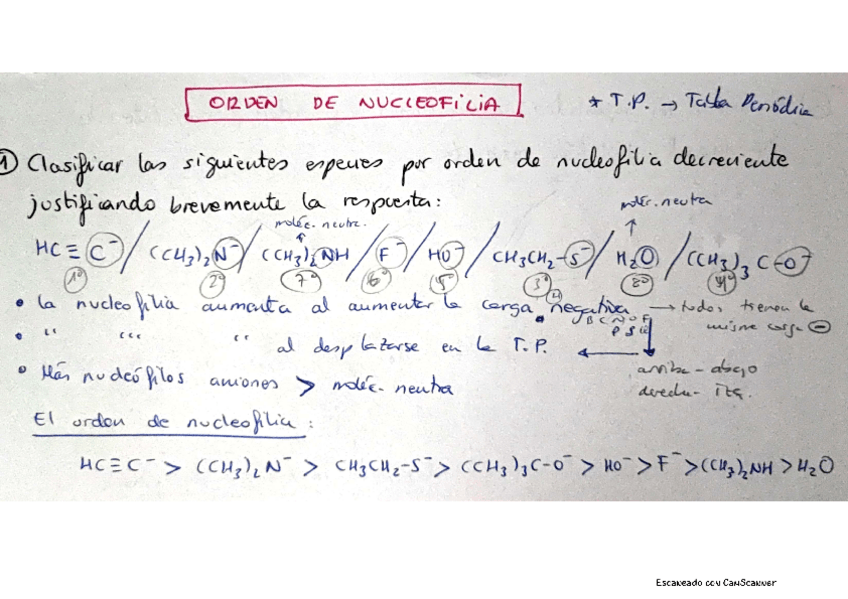 ORDEN DE NUCLEOFILIA * T.P. → Tabla Periódica
① Clasificar las siguientes especies por orden de nucleofilia decreciente
justificando brevemente la respuesta:
moléc. neutra. moléc. neutra
HC≡C⁻ / (CH3)2N⁻ / (CH3)2NH / F⁻ / HO⁻ / CH3CH2-S⁻ / H2O / (CH3)3C-O⁻
1º 2º 7º 6º 5º 3º 8º 4º
• La nucleofilia aumenta al aumentar la carga negativa → todos tienen la
misma carga ⊖
B C N O F
P S
• " " " al desplazarse en la T.P. ← ↓
arriba - abajo
derecha - izq.
• Más nucleófilos aniones > moléc. neutra
El orden de nucleofilia:
HC≡C⁻ > (CH3)2N⁻ > CH3CH2-S⁻ > (CH3)3C-O⁻ > HO⁻ > F⁻ > (CH3)2NH > H2O
Escaneado con CamScanner